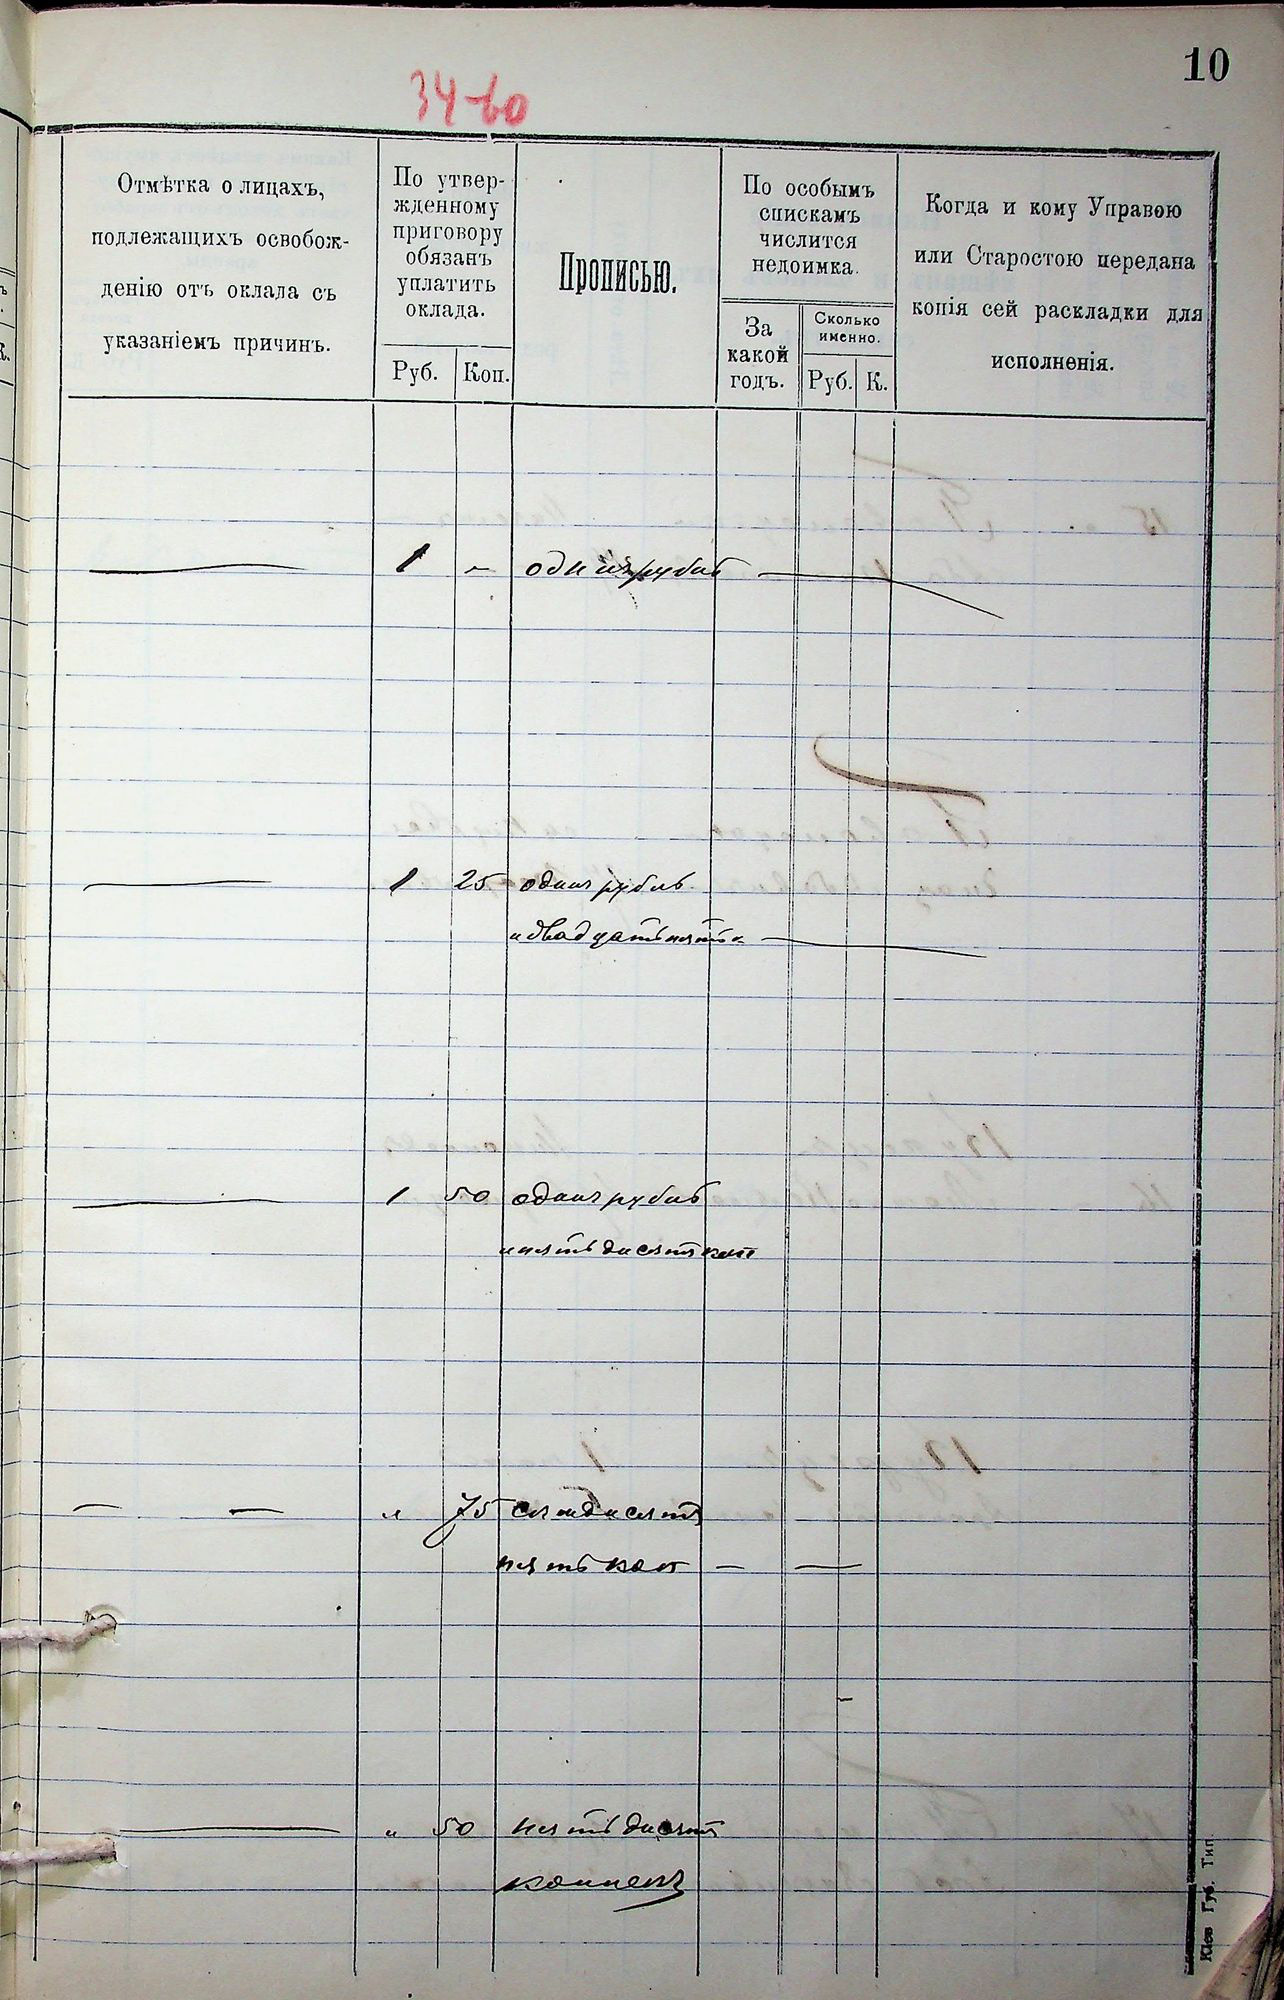 10
34-го
Отмѣтка о лицахъ,
подлежащихъ освобож-
денію отъ оклала съ
указаніемъ причинъ.
По утвер-
жденному
приговору
обязанъ
уплатить
оклада.
Руб. Коп.
Прописью.
По особымъ
спискамъ
числится
недоимка.
За
какой
годъ.
Сколько
именно.
Руб. К.
Когда и кому Управою
или Старостою передана
копія сей раскладки для
исполненія.
1 - одинъ рубль
1 25 одинъ рубль
и двадцать пять к
1 50 одинъ рубль
и пятьдесятъ коп
" 75 семдесятъ
пять коп
" 50 пятьдесятъ
коппекъ
Кіев Губ. Тип.